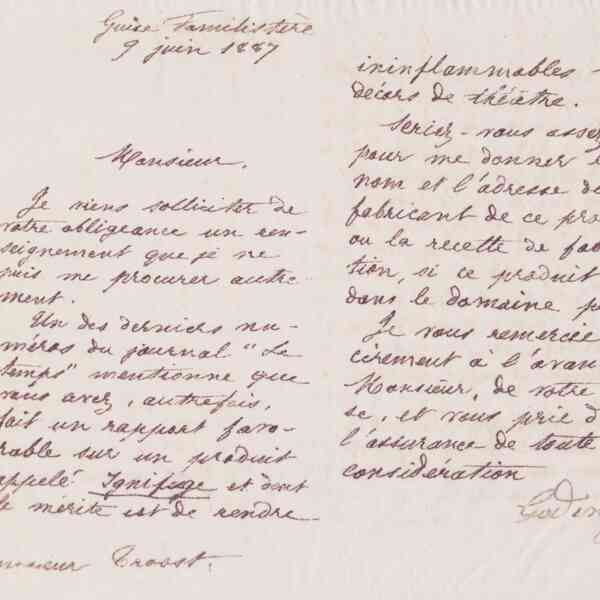 Guise Familistère
9 juin 1887
Monsieur,
Je viens solliciter de
votre obligeance un ren-
seignement que je ne
puis me procurer autre-
ment.
Un des derniers nu-
méros du journal "Le
temps" mentionne que
vous avez, autrefois,
fait un rapport favo-
rable sur un produit
appelé Ignifuge et dont
le mérite est de rendre
Monsieur Troost.
ininflammables
décors de théâtre.
Seriez-vous assez
pour me donner
nom et l'adresse du
fabricant de ce pro
ou la recette de fab
tion, si ce produit
dans le domaine p
Je vous remercie
cèrement à l'avan
Monsieur, de votre
se, et vous prie d
l'assurance de toute
considération
Godin